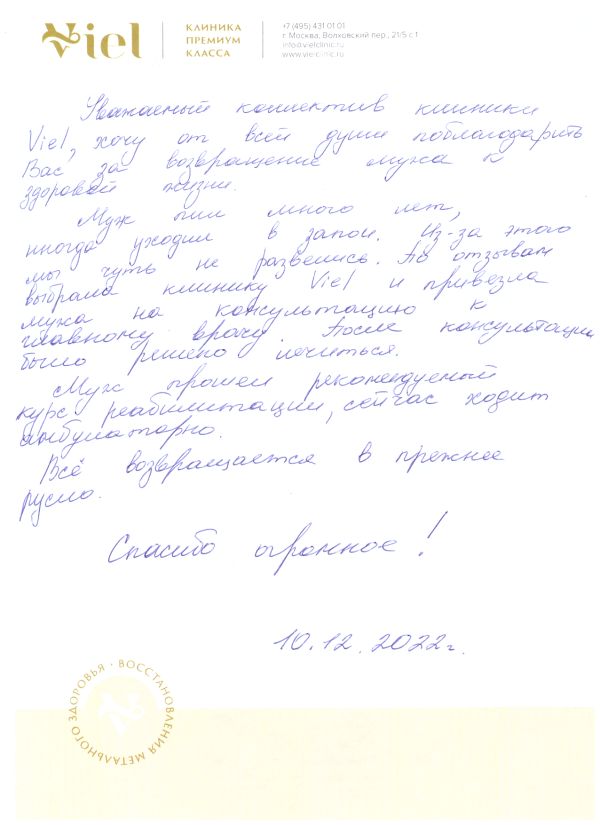 Viel
КЛИНИКА
ПРЕМИУМ
КЛАССА
+7 (495) 431 01 01
г. Москва, Волховский пер., 21/5 с 1
info@vielclinic.ru
www.vielclinic.ru
Уважаемый коллектив клиники
Viel, хочу от всей души поблагодарить
Вас за возвращение мужа к
здоровой жизни.
Муж пил много лет,
иногда уходил в запои. Из-за этого
мы чуть не развелись. По отзывам
выбрала клинику Viel и привезла
мужа на консультацию к
главному врачу. После консультации
было решено лечиться.
Муж прошел рекомендуемый
курс реабилитации, сейчас ходит
амбулаторно.
Всё возвращается в прежнее
русло.
Спасибо огромное!
10.12.2022г.
ВОССТАНОВЛЕНИЯ МЕТАЛЬНОГО ЗДОРОВЬЯ